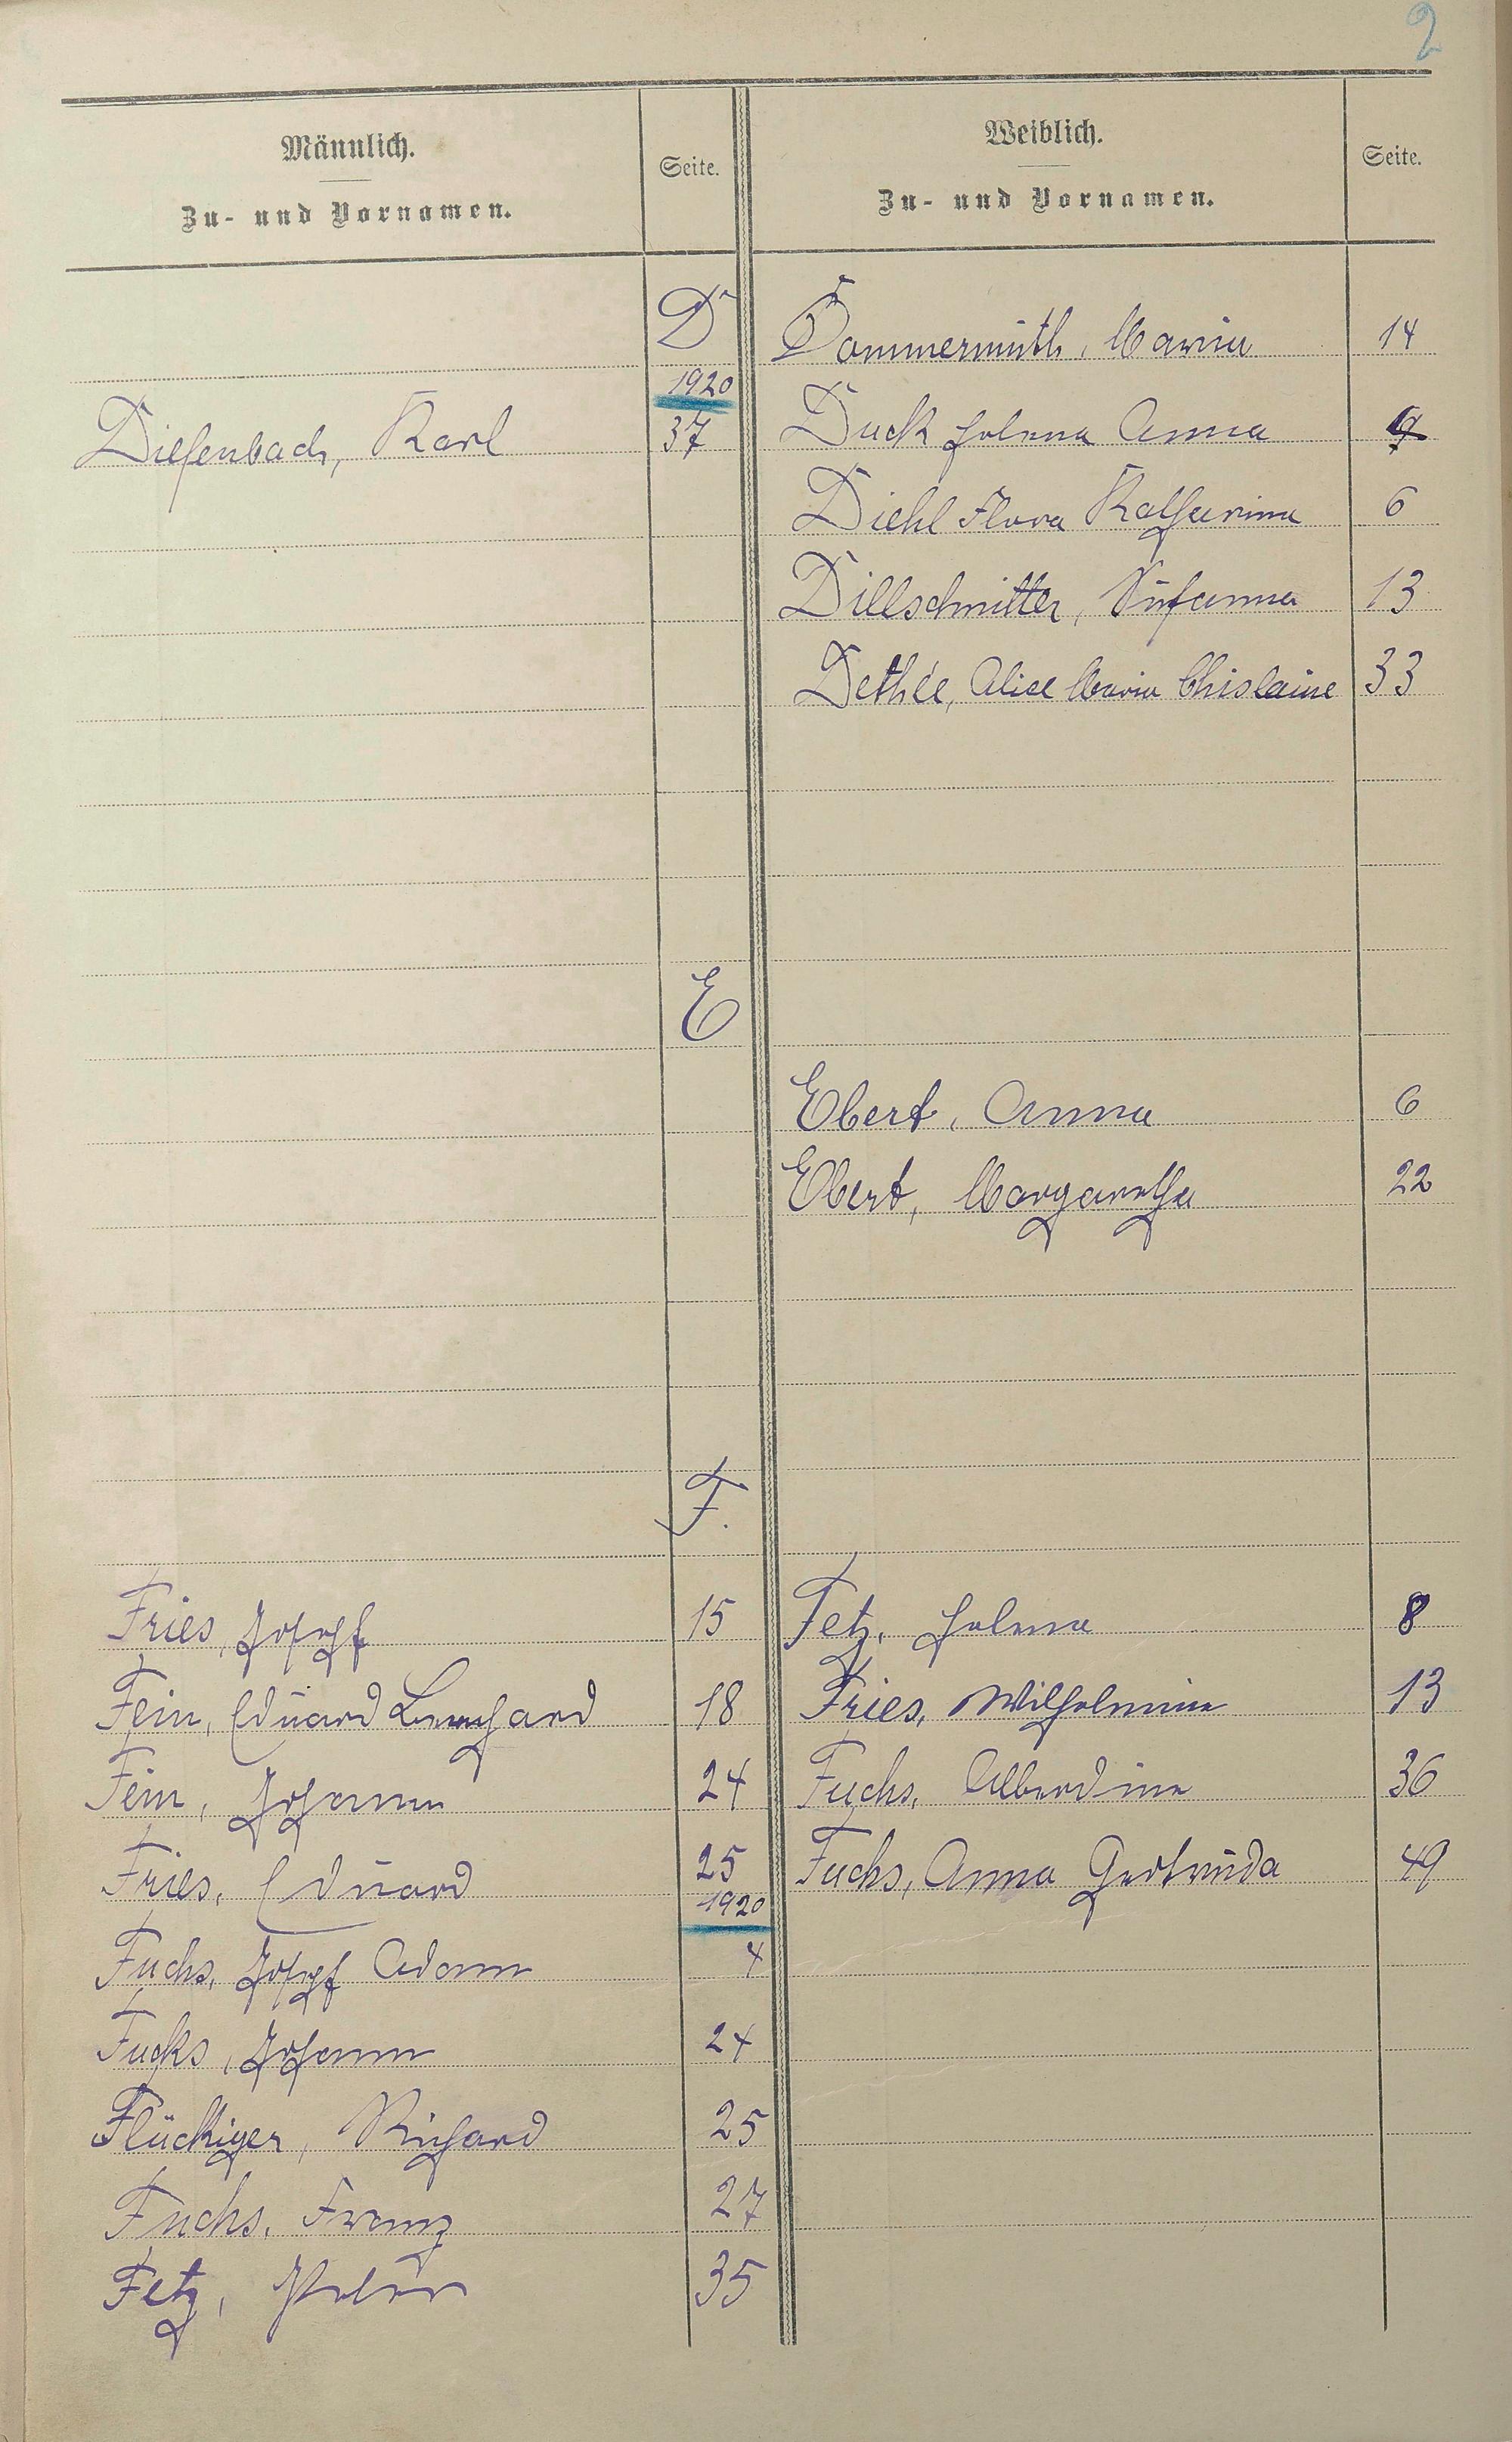 2
Männlich.
Zu- und Vornamen.
Seite.
Weiblich.
Zu- und Vornamen.
Seite.
D
Dommermuth, Maria 14
1920
Diefenbach, Karl 37
Duck Helena Anna
Diehl Flora Katharina 6
Dillschnitter, Susanna 13
Dethée, Alice Maria Ghislaine 33
E
Ebert, Anna 6
Ebert, Margaretha 22
F.
Fries, Josef 15
Fetz, Helena 8
Fein, Eduard Bernhard 18
Fries, Wilhelmine 13
Fein, Johann 24
Fuchs, Albertine 36
Fries, Eduard 25
Fuchs, Anna Gertruda 49
1920
Fuchs, Josef Adam 4
Fuchs, Johann 24
Flückiger, Richard 25
Fuchs, Franz 27
Fetz, Peter 35